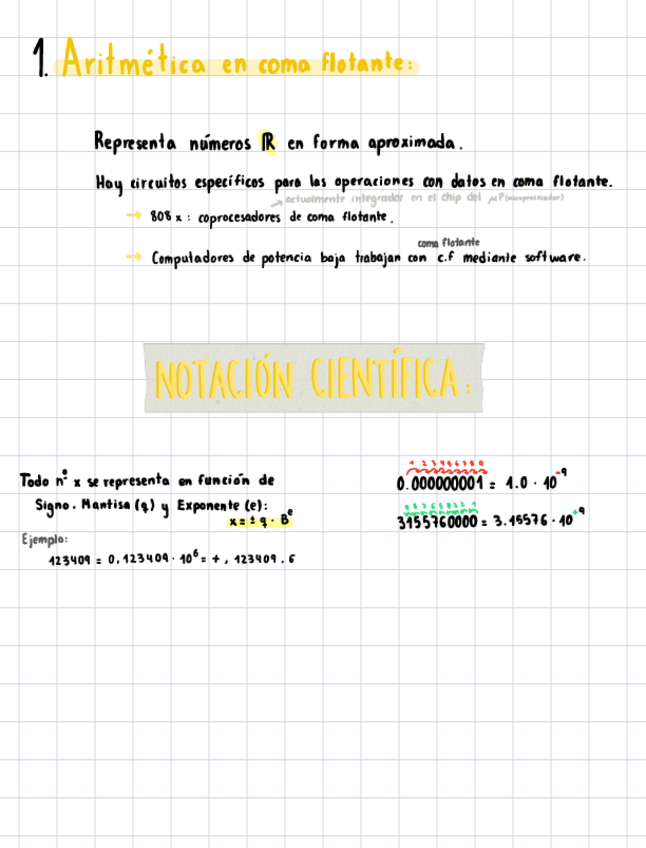 1. Aritmética en coma flotante:
Representa números ℝ en forma aproximada.
Hay circuitos específicos para las operaciones con datos en coma flotante.
→ actualmente integrador en el chip del μP (microprocesador)
→ 808x: coprocesadores de coma flotante.
coma flotante
→ Computadores de potencia baja trabajan con c.f mediante software.
NOTACIÓN CIENTÍFICA:
Todo nº x se representa en función de
Signo, Mantisa (q) y Exponente (e):
x = ± q · B^e
Ejemplo:
123409 = 0,123409 · 10^6 = +, 123409, 6
1 2 3 4 5 6 7 8 9
0.000000001 = 1.0 · 10^-9
9 8 7 6 5 4 3 2 1
3155760000 = 3.15576 · 10^+9